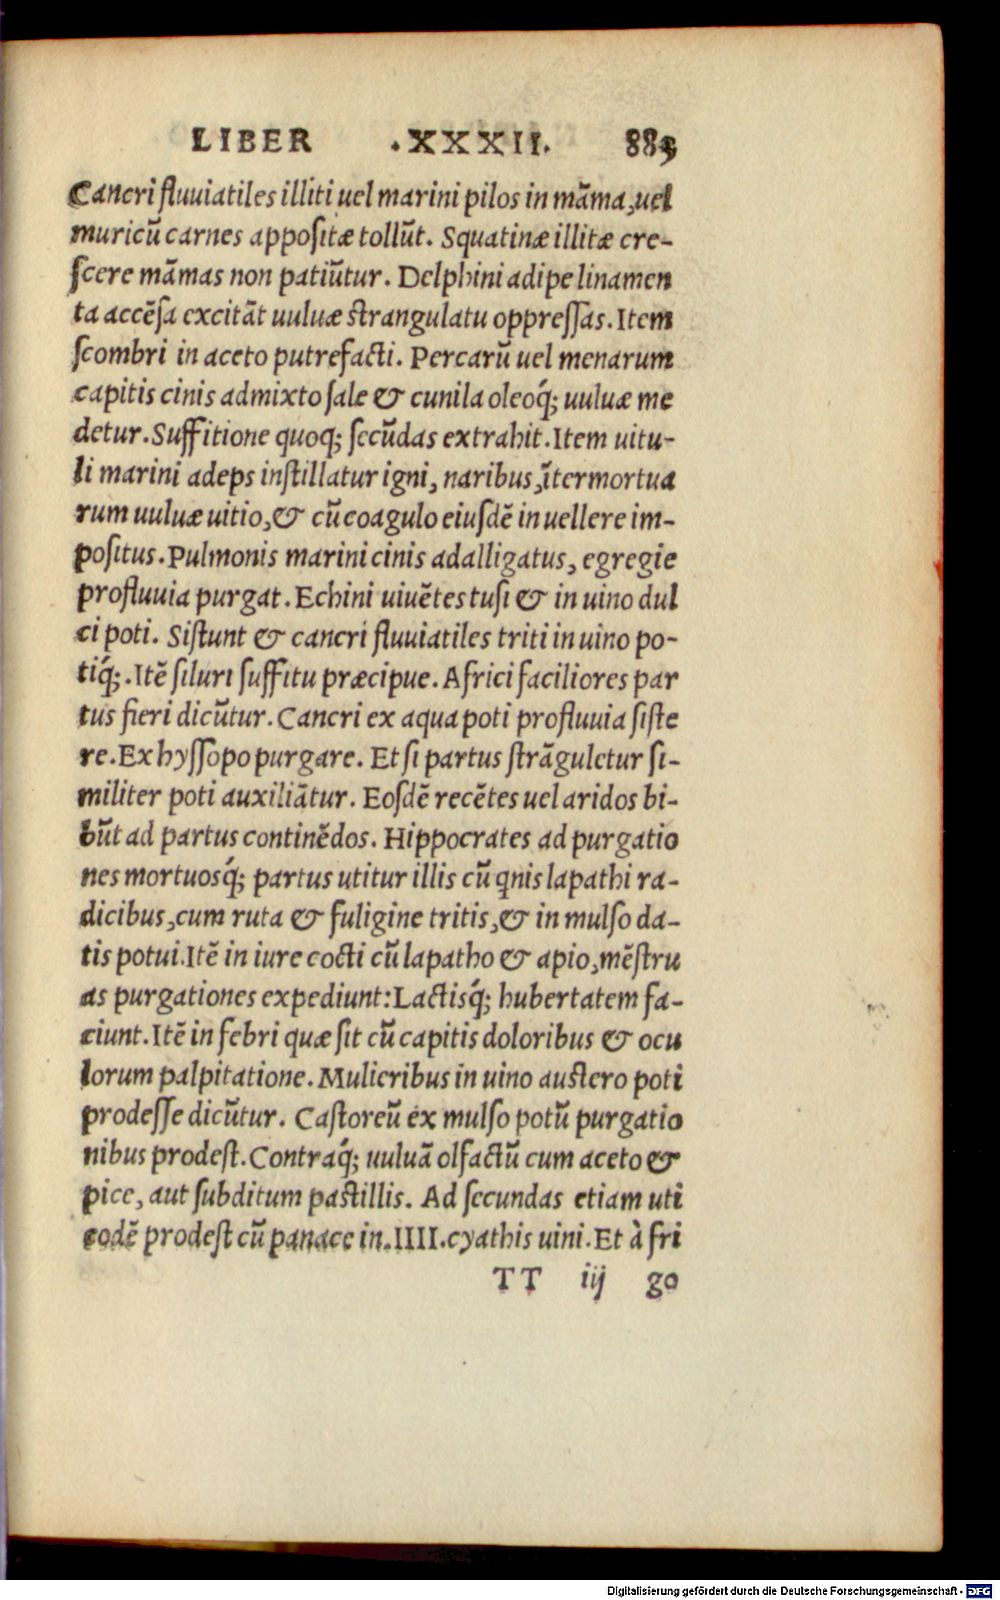 LIBER .XXXII. 883
Cancri fluuiatiles illiti uel marini pilos in mãma,uel
muricũ carnes appositæ tollũt. Squatinæ illitæ cre-
scere mãmas non patiũtur. Delphini adipe linamen
ta accẽsa excitãt uuluæ strangulatu oppressas. Item
scombri in aceto putrefacti. Percarũ uel menarum
capitis cinis admixto sale & cunila oleoq́; uuluæ me
detur. Suffitione quoq; secũdas extrahit. Item uitu-
li marini adeps instillatur igni, naribus, ĩtermortua
rum uuluæ uitio,& cũ coagulo eiusdẽ in uellere im-
positus. Pulmonis marini cinis adalligatus, egregie
profluuia purgat. Echini uiuẽtes tusi & in uino dul
ci poti. Sistunt & cancri fluuiatiles triti in uino po-
tiq́;. Itẽ siluri suffitu præcipue. Africi faciliores par
tus fieri dicũtur. Cancri ex aqua poti profluuia siste
re. Ex hyssopo purgare. Et si partus strãguletur si-
militer poti auxiliãtur. Eosdẽ recẽtes uel aridos bi-
bũt ad partus continẽdos. Hippocrates ad purgatio
nes mortuosq́; partus utitur illis cũ qnis lapathi ra-
dicibus,cum ruta & fuligine tritis,& in mulso da-
tis potui. Itẽ in iure cocti cũ lapatho & apio,mẽstru
as purgationes expediunt: Lactisq́; hubertatem fa-
ciunt. Itẽ in febri quæ sit cũ capitis doloribus & ocu
lorum palpitatione. Mulieribus in uino austero poti
prodesse dicũtur. Castoreũ ex mulso potũ purgatio
nibus prodest. Contraq́; uuluã olfactũ cum aceto &
pice, aut subditum pastillis. Ad secundas etiam uti
eodẽ prodest cũ panace in.IIII.cyathis uini. Et à fri
TT iij go
Digitalisierung gefördert durch die Deutsche Forschungsgemeinschaft - DFG